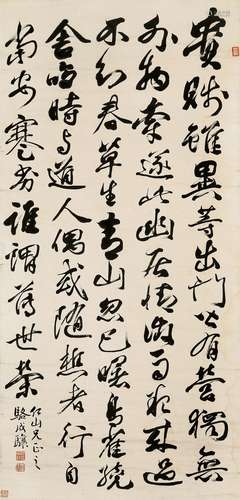 貴賤雖異等出門皆有營獨無
外物牽遂此幽居情微雨夜來過
不知春草生青山忽已曙鳥雀繞
舍鳴時與道人偶或隨樵者行自
當安蹇劣誰謂薄世榮
仁山兄正之
駱成驤